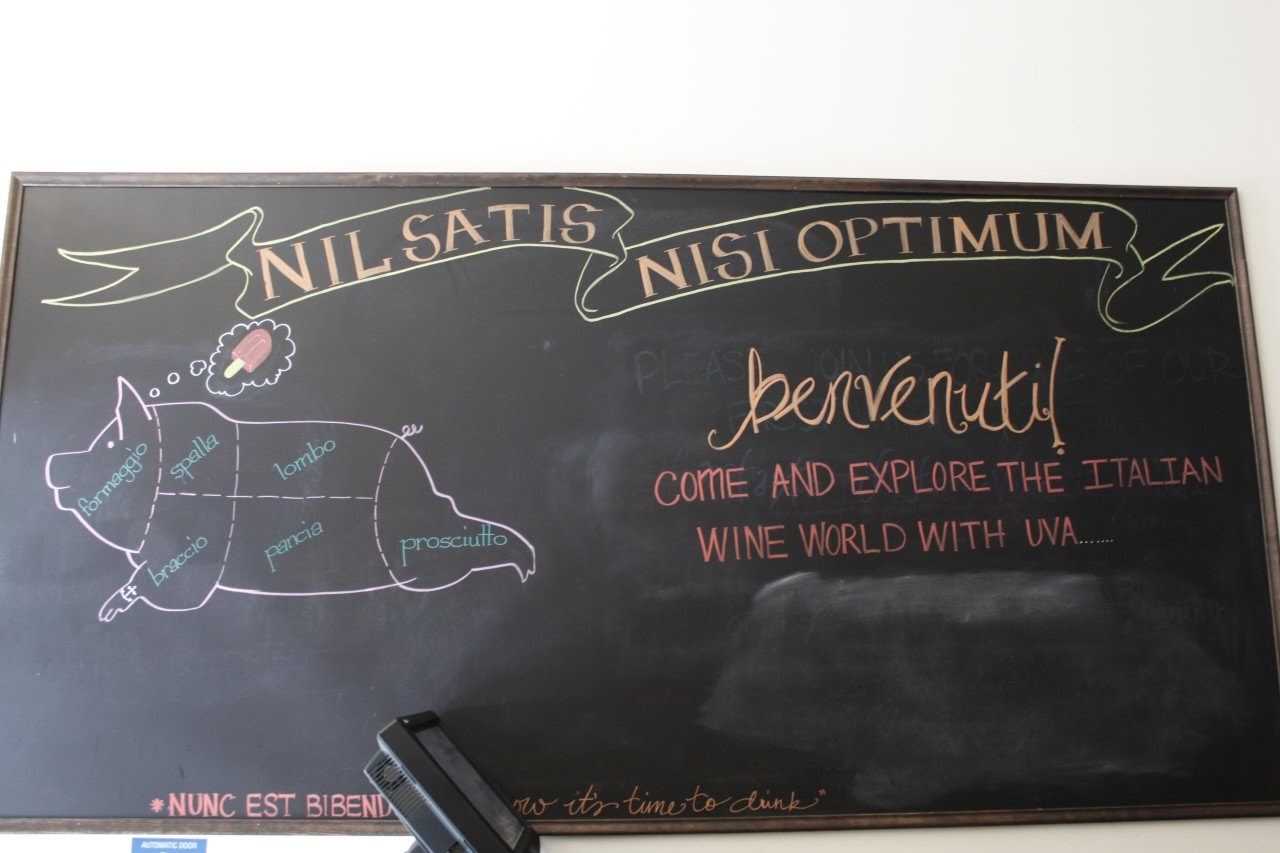 NIL SATIS NISI OPTIMUM
formaggio
spalla
lombo
braccio
pancia
prosciutto
benvenuti!
COME AND EXPLORE THE ITALIAN
WINE WORLD WITH UVA.......
*NUNC EST BIBEND ow it's time to drink"
AUTOMATIC DOOR